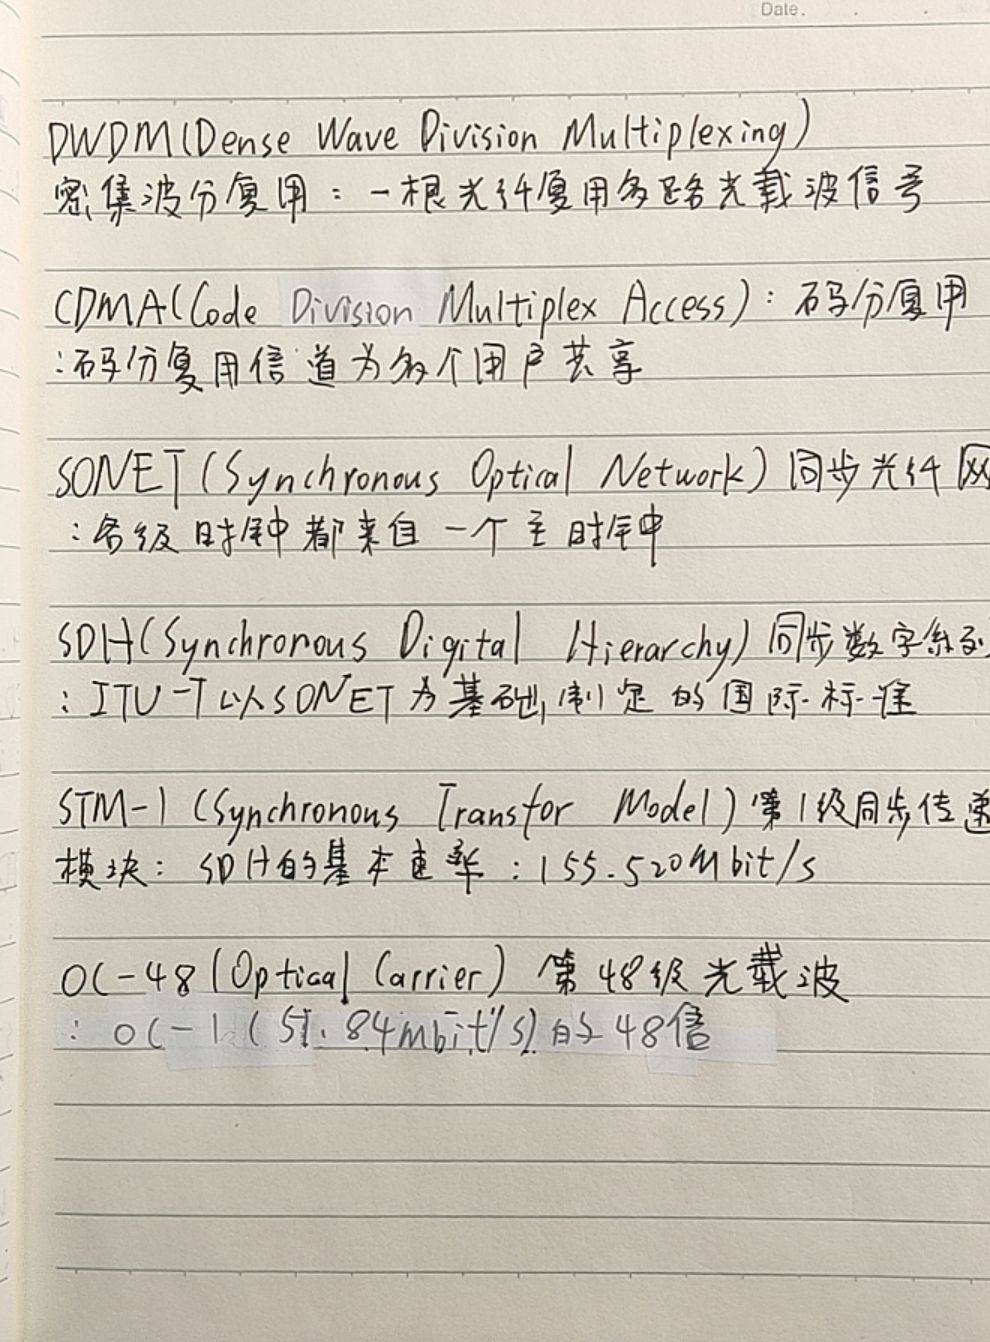 Date.
DWDM(Dense Wave Division Multiplexing)
密集波分复用：一根光纤复用多路光载波信号
CDMA(Code Division Multiplex Access)：码分复用
：码分复用信道为多个用户共享
SONET(Synchronous Optical Network)同步光纤网
：各级时钟都来自一个主时钟
SDH(Synchronous Digital Hierarchy)同步数字系列
：ITU-T以SONET为基础,制定的国际标准
STM-1(Synchronous Transfor Model)第1级同步传递
模块：SDH的基本速率：155.520Mbit/s
OC-48(Optical Carrier)第48级光载波
：OC-1(51.84mbit/s)的48倍